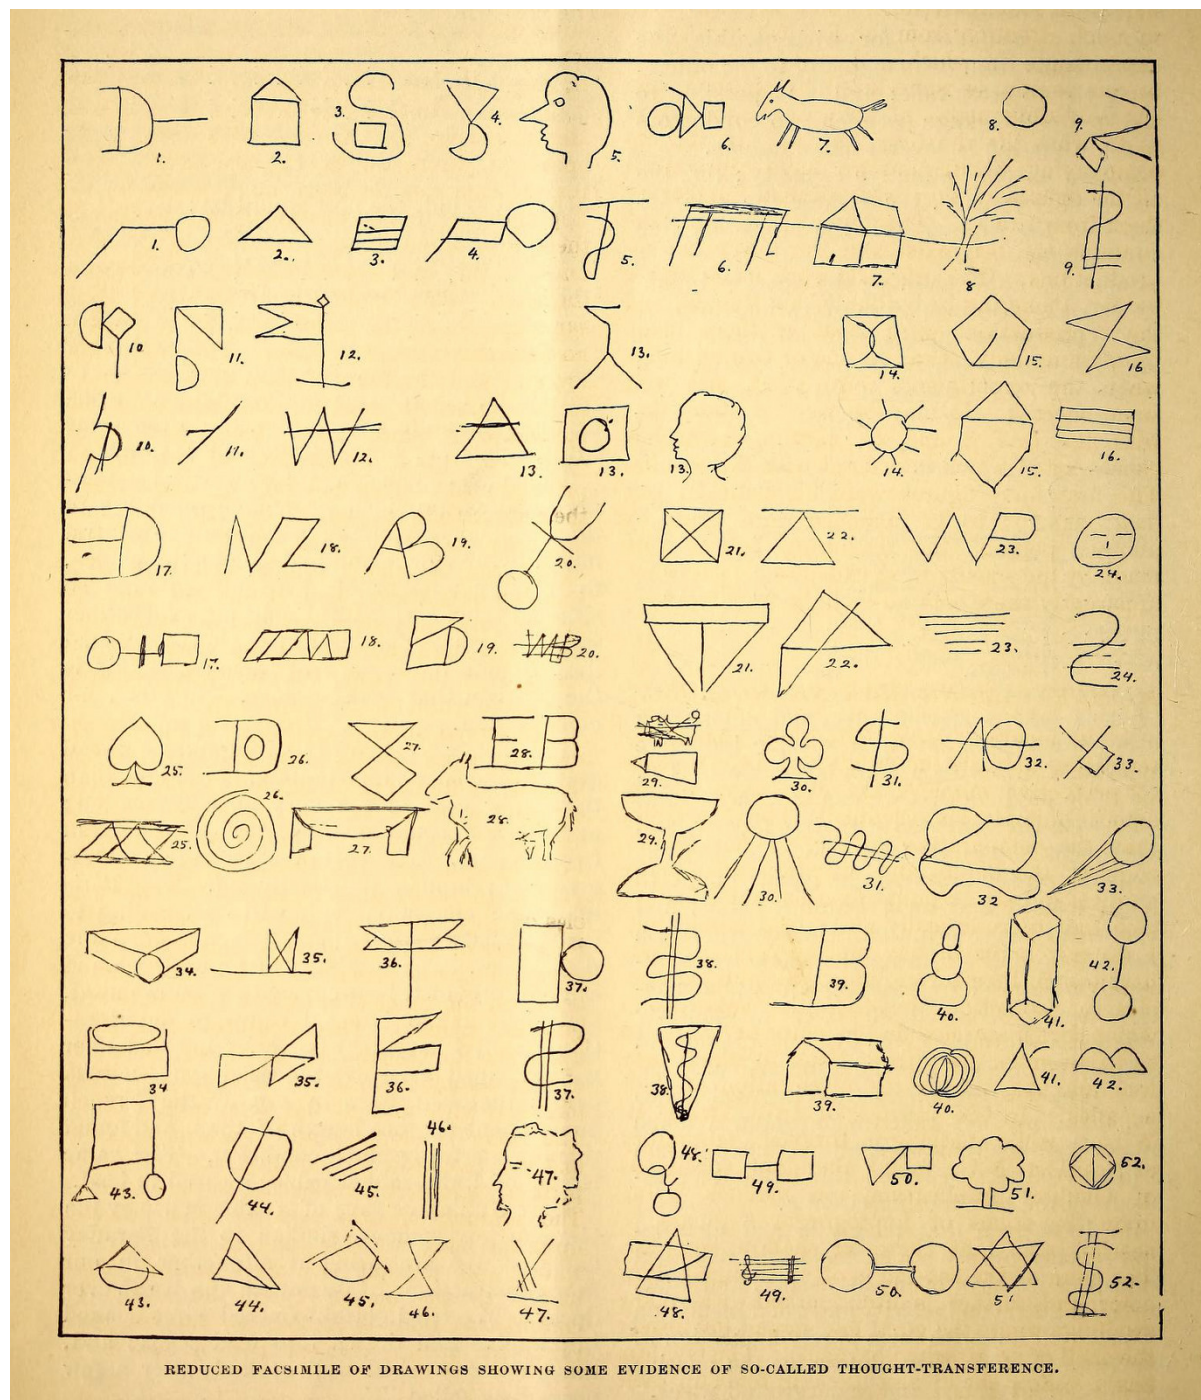 1. 2. 3. 4. 5. 6. 7. 8. 9.
1. 2. 3. 4. 5. 6. 7. 8 9.
10 11. 12. 13. 14. 15. 16
10. 11. 12. 13. 13. 13. 14. 15. 16.
17. NZ 18. AB 19. 20. 21. 22. WP 23. 24.
17. 18. 19. 20. 21. 22. 23. 24.
25. D 26. 27. EB 28. 29. 30. $ 31. 32. 33.
25. 26. 27. 28. 29. 30. 31. 32 33.
34. 35. 36. 37. 38. B 39. 40. 41. 42.
34 35. 36. 37. 38. 39. 40. 41. 42.
43. 44. 45. 46. 47. 48. 49. 50. 51. 52.
43. 44. 45. 46. 47. 48. 49. 50. 51 52.
REDUCED FACSIMILE OF DRAWINGS SHOWING SOME EVIDENCE OF SO-CALLED THOUGHT-TRANSFERENCE.